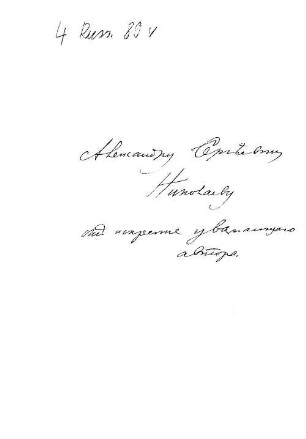 4 Russ. 80 v
Александру Сергѣевичу
Николаеву
отъ искренне уважающаго
автора.